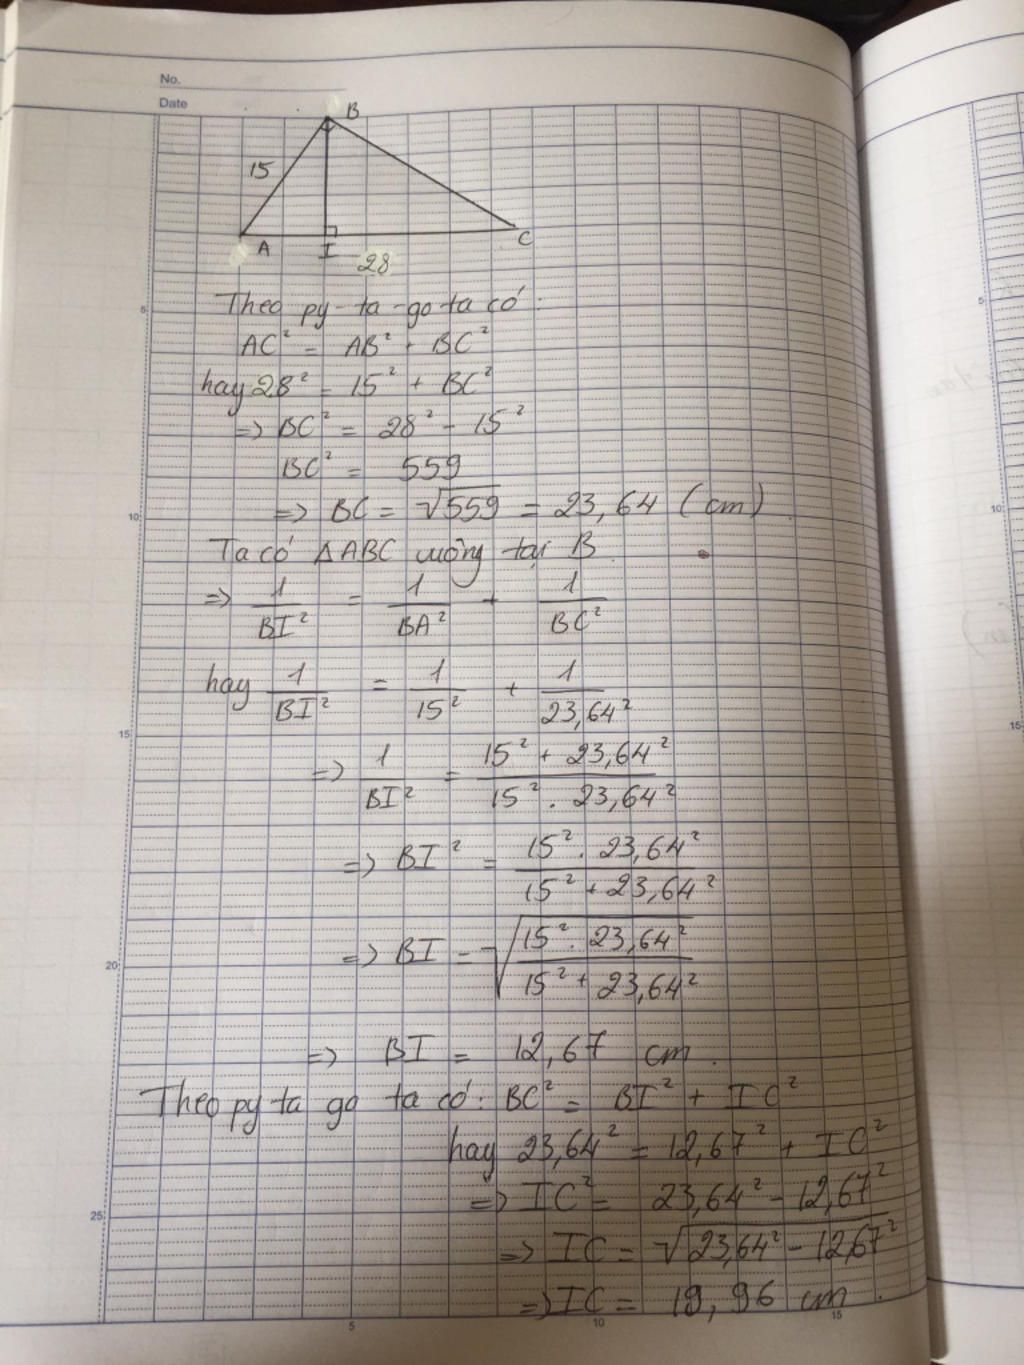 No.
Date
B
15
A
I
C
28
Theo py-ta-go ta có:
AC² = AB² + BC²
hay 28² = 15² + BC²
=> BC² = 28² - 15²
BC² = 559
=> BC = √559 = 23,64 (cm)
Ta có ΔABC vuông tại B
=> 1/BI² = 1/BA² + 1/BC²
hay 1/BI² = 1/15² + 1/23,64²
=> 1/BI² = 15² + 23,64² / 15² . 23,64²
=> BI² = 15² . 23,64² / 15² + 23,64²
=> BI = √15² . 23,64² / 15² + 23,64²
=> BI = 12,67 cm.
Theo py ta go ta có: BC² = BI² + IC²
hay 23,64² = 12,67² + IC²
=> IC² = 23,64² - 12,67²
=> IC = √23,64² - 12,67²
=> IC = 19,96 cm.
5
10
15
20
25
5
10
15
5
10
15